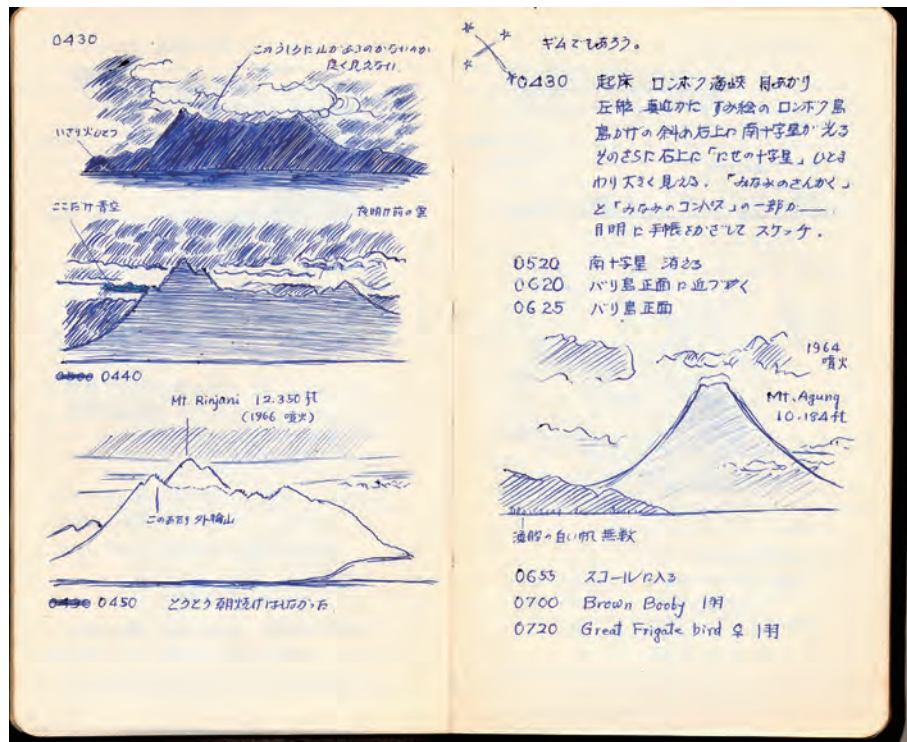 0430
このうしろに山があるのかないのか
良く見えない
いさり火ひとつ
ここだけ青空
夜明け前の雲
0500 0440
Mt. Rinjani 12.350 ft
(1966 噴火)
このあたり 外輪山
0430 0450 とうとう朝焼けはしなかった
ギムであろう。
0430 起床 ロンボク海峡 月あかり
左舷 真近かた すみ絵の ロンボク島
島かげの斜め右上に 南十字星が 光る
そのさらに 右上に 「にせの十字星」 ひとま
わり大きく見える. 「みなみのさんかく」
と「みなみのコンパス」の一部か——.
月明に 手帳をかざして スケッチ.
0520 南十字星 消える
0620 バリ島正面に近づく
0625 バリ島正面
1964
噴火
Mt. Agung
10.184 ft
漁船の白い帆 無数
0655 スコールに入る
0700 Brown Booby 1羽
0720 Great Frigate bird ♀ 1羽